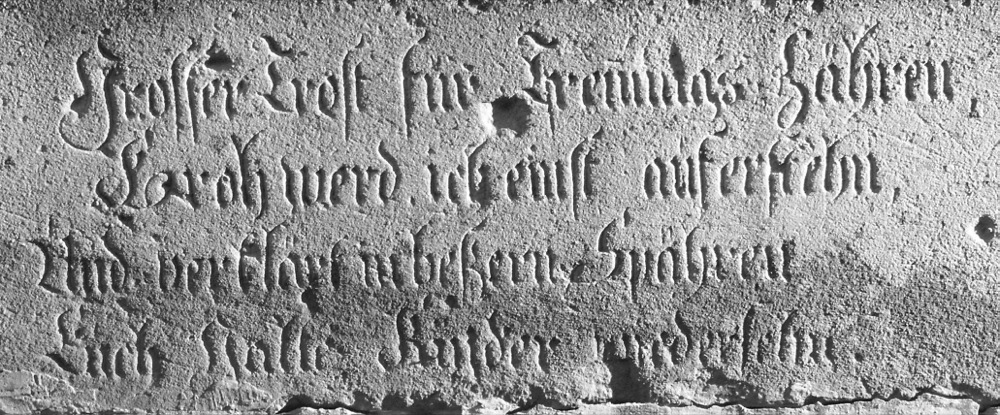 Grosser Trost für Tren̄ungs Zähren,
Froh werd ich einst auferstehn,
Und verklärt in beßern Spähren
Euch Kinder wiedersehn.